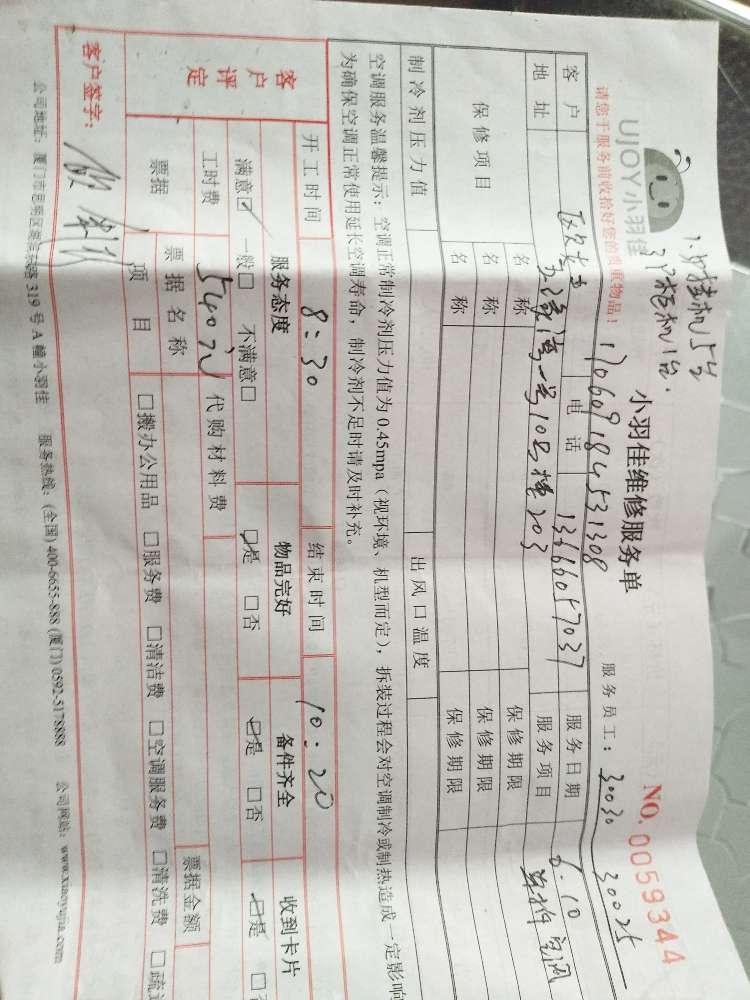 小明挂机5台
3P柜机1台.
UJOY小羽佳
小羽佳维修服务单
NO. 0059344
请您于服务前收拾好您的贵重物品！
170609184531308
服务员工： 30030 30025
客户 电话 13666057037 服务日期 6.10
地址 五缘湾一号10号楼203 服务项目 空调
保修项目 名称 保修期限
名称 保修期限
名称 保修期限
制冷剂压力值 出风口温度
空调服务温馨提示：空调正常制冷剂压力值为0.45mpa（视环境、机型而定），拆装过程会对空调制冷或制热造成一定影响
为确保空调正常使用延长空调寿命，制冷剂不足时请及时补充。
开工时间 8:30 结束时间 10:20
客户评定 服务态度 物品完好 备件齐全 收到卡片
满意☑ 一般□ 不满意□ ☑是 □否 ☑是 □否 ☑是 □
工时费 540元 代购材料费
票据 票据名称 票据金额
项目 □搬办公用品 □服务费 □清洁费 □空调服务费 □清洗费 □疏
客户签字：
公司地址：厦门市思明区 319号A幢小羽佳 服务热线：(全国) 400-6655-888 (厦门) 0592-5178888 公司网站：www.xiaoyujia.com